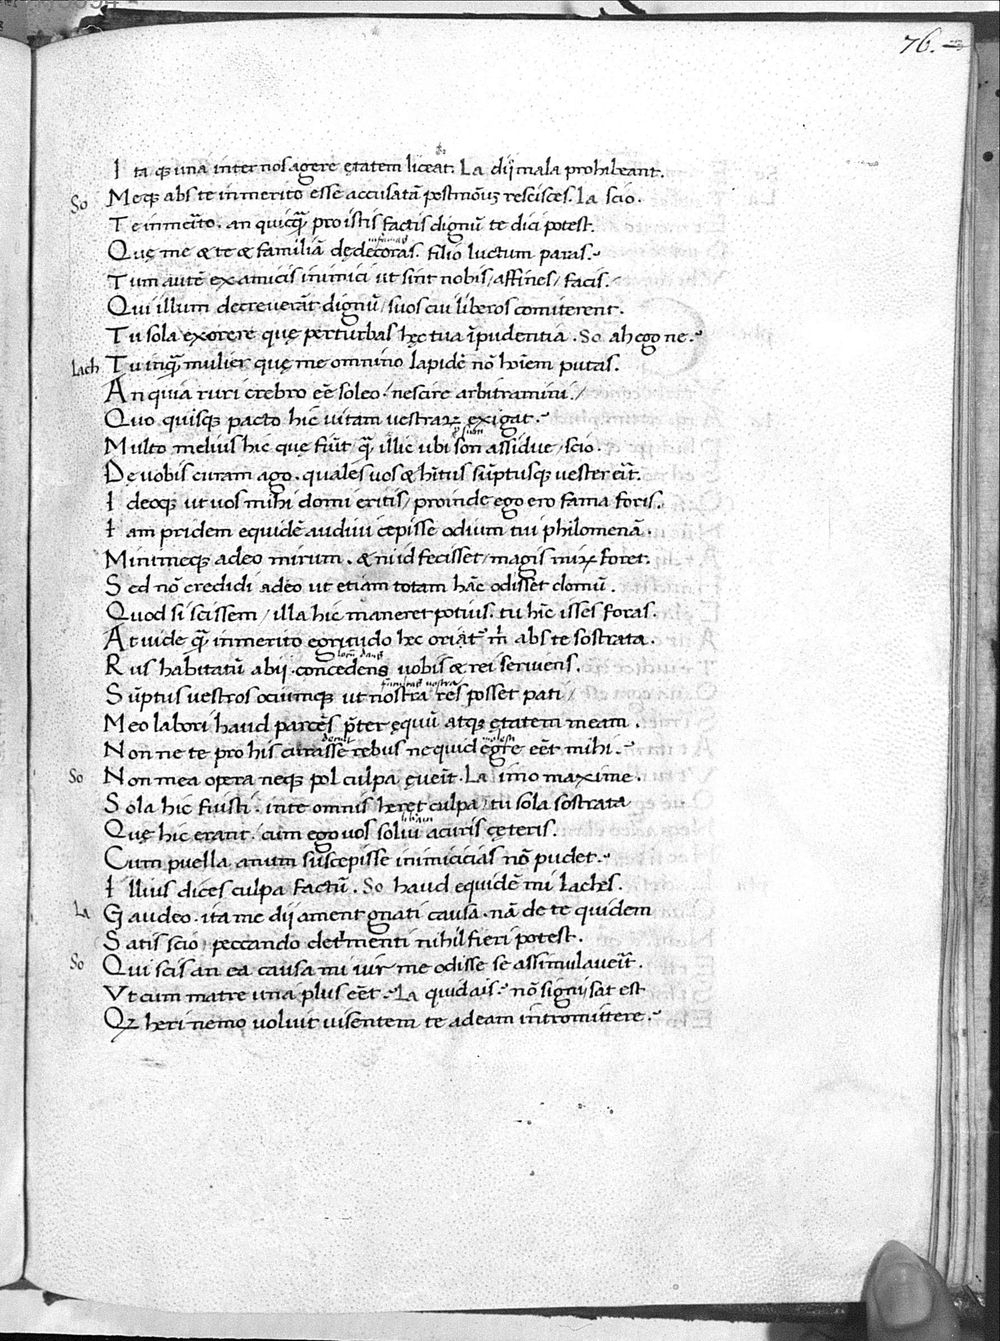 76.
I ta q̢ una inter nos agere ętatem liceat. La dij mala prohibeant.
So Meq̢ abs te inmerito esse accusatā postmōuʒ rescisces. La scio.
Te inmerito. an quicq̄ pro istis factis dignū te dici potest.
Quę me & te & familiā dędecoras. filio luctum paras.
Tum autē ex amicis inimici ut sint nobis / affines / facis.
Qui illum decreuerāt dignū / suos cui liberos comiterent.
Tu sola exorere quę perturbas hęc tua īpudentia. So ah ego ne.
Lach Tu inq̄ mulier quę me omnino lapidē nō hoīem putas.
An quia ruri crebro eē soleo. nescire arbitramini.
Quo quisq̢ pacto hic uitam uestraꝝ exigat.
Multo melius hic quę fiūt q̄ illic ubi son assidue / scio.
Dę uobis curam ago. quales uos & hītus sūptusq̢ uester eīt.
I deoq̢ ut uos mihi domi eritis / proinde ego ero fama foris.
I am pridem equidē audiui cepisse odium tui philomenā.
Minimeq̢ adeo mirum. & ni id fecisset / magis miꝝ foret.
Sed nō credidi adeo ut etiam totam hāc odisset domū.
Quod si scissem / illa hic maneret potius. tu hīc isses foras.
At uide q̄ inmerito egritudo hec oriāt͛ m̄ abs te sostrata.
Rus habitatū abij. concedens uobis & rei seruiens.
Sūptus uestros ociumq̢ ut nostra res posset pati /
Meo labori haud parcēs p̄ter ęquū atq̢ ętatem meam.
Non ne te pro his curasse rebus ne quid ęgre eēt mihi.
So Non mea opera neq̢ pol culpa ęueīt. La imo maxime.
Sola hic fuisti. in te omnis heręt culpa / tu sola sostrata
Quę hic erant / cum ego uos solui a curis cęteris.
Cum puella anum suscepisse inimicicias nō pudet.
I llius dices culpa factū. So haud equidē mi laches.
La Gaudeo. ita me dij ament gnati causa. nā de te quidem
Satis scio / peccando det̄menti nihil fieri potest.
So Qui scis an ea causa mi uir me odisse se assimulaueīt.
Vt cum matre una plus eēt. La quid ais. nō signi sat est
Qꝫ heri nemo uoluit uisentem te adeam intromittere.